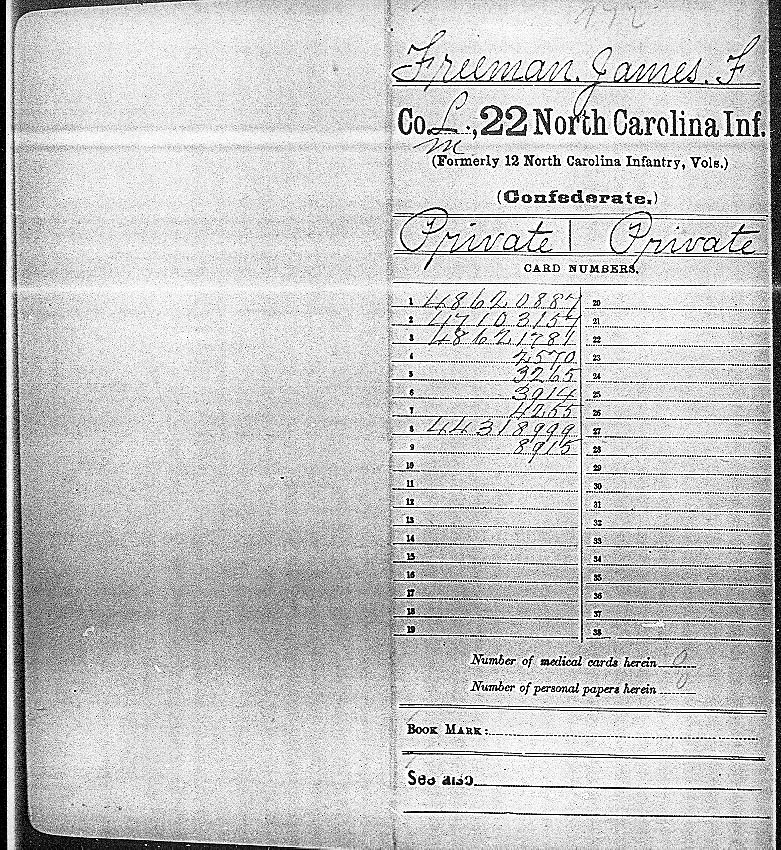 972
Freeman, James. F
Co. L., 22 North Carolina Inf.
M
(Formerly 12 North Carolina Infantry, Vols.)
(Confederate.)
Private | Private
CARD NUMBERS.
1 48620887 20
2 47103157 21
3 48621781 22
4 2570 23
5 3265 24
6 3914 25
7 4255 26
8 44318999 27
9 8915 28
10 29
11 30
12 31
13 32
14 33
15 34
16 35
17 36
18 37
19 38
Number of medical cards herein 0
Number of personal papers herein 0
BOOK MARK:
See also